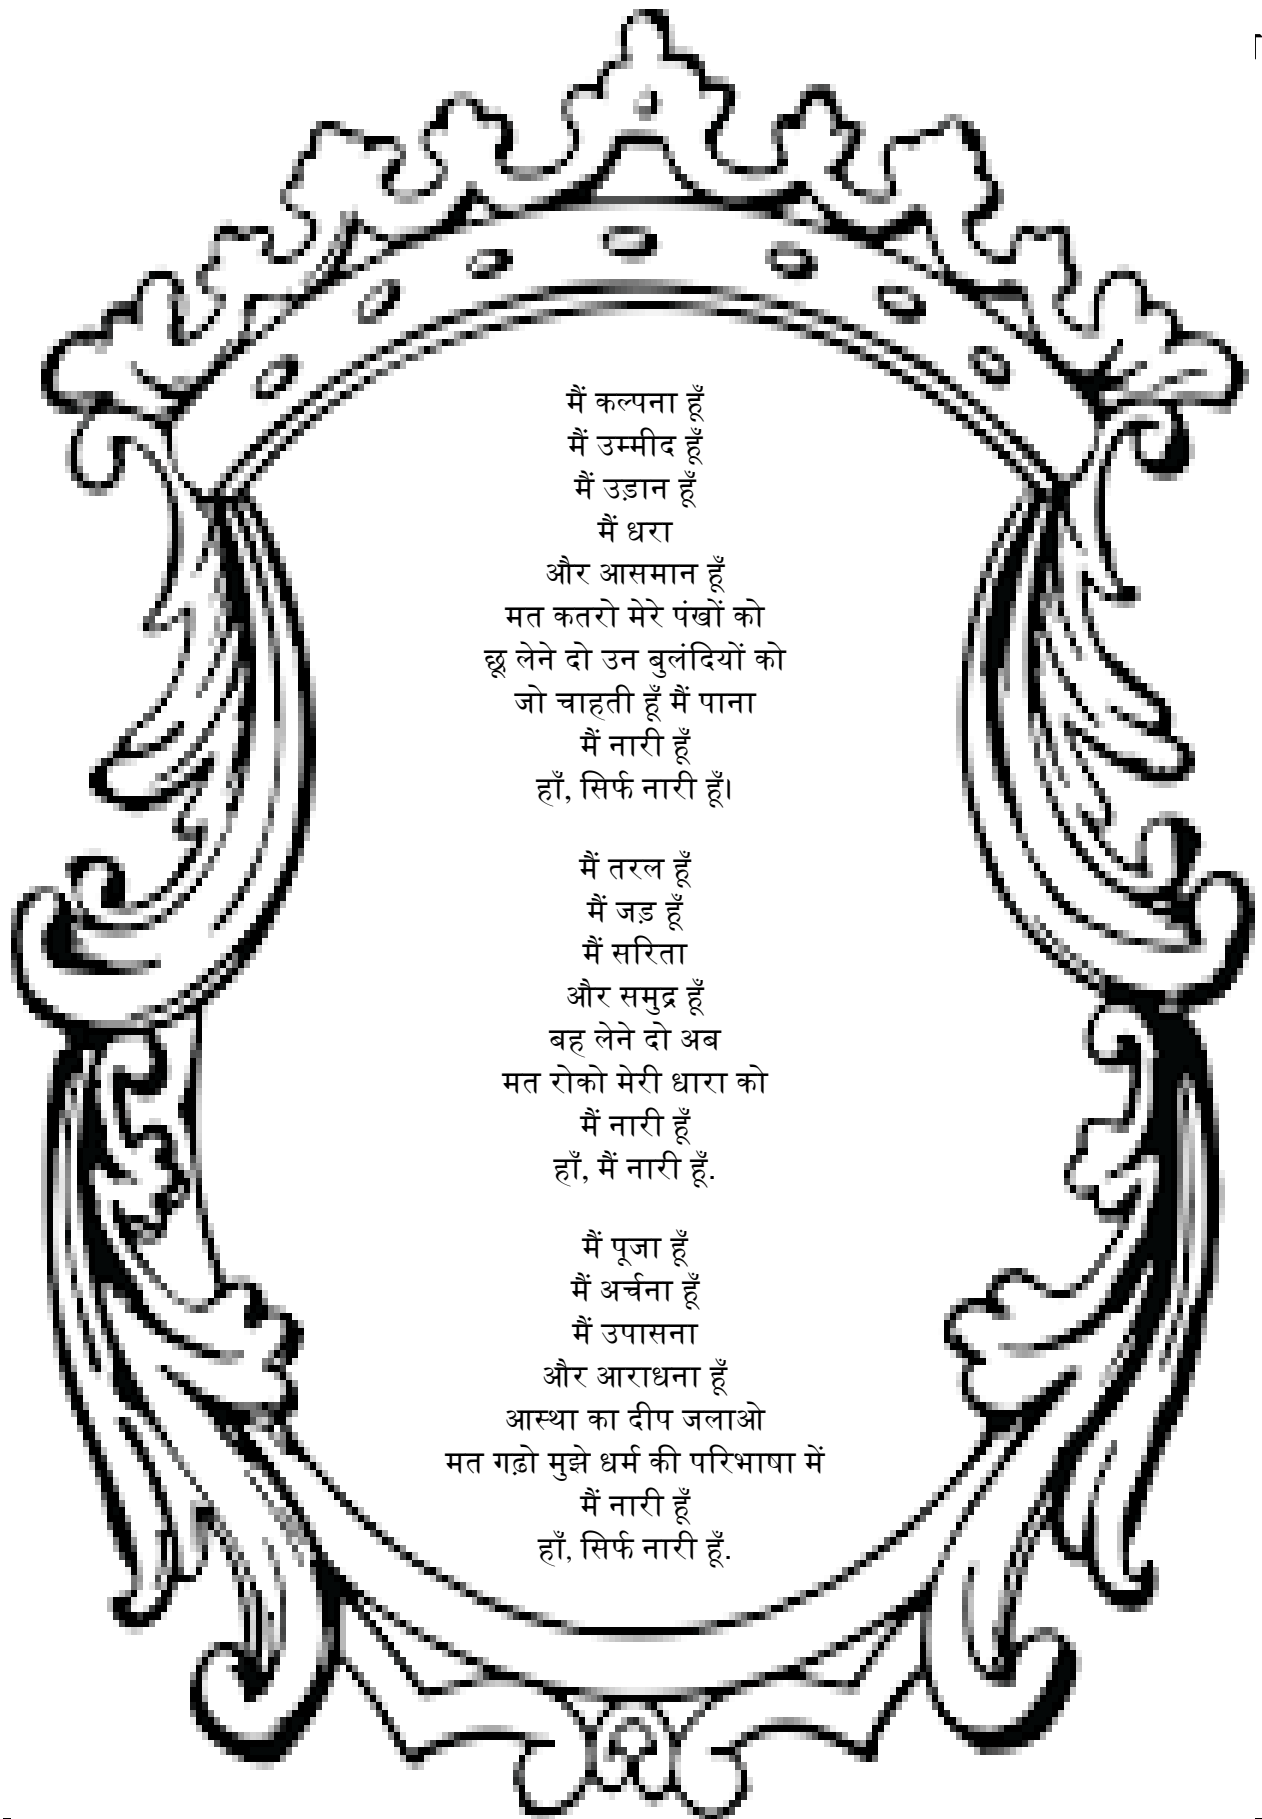 मैं कल्पना हूँ
मैं उम्मीद हूँ
मैं उड़ान हूँ
मैं धरा
और आसमान हूँ
मत कतरो मेरे पंखों को
छू लेने दो उन बुलंदियों को
जो चाहती हूँ मैं पाना
मैं नारी हूँ
हाँ, सिर्फ नारी हूँ।
मैं तरल हूँ
मैं जड़ हूँ
मैं सरिता
और समुद्र हूँ
बह लेने दो अब
मत रोको मेरी धारा को
मैं नारी हूँ
हाँ, मैं नारी हूँ.
मैं पूजा हूँ
मैं अर्चना हूँ
मैं उपासना
और आराधना हूँ
आस्था का दीप जलाओ
मत गढ़ो मुझे धर्म की परिभाषा में
मैं नारी हूँ
हाँ, सिर्फ नारी हूँ.